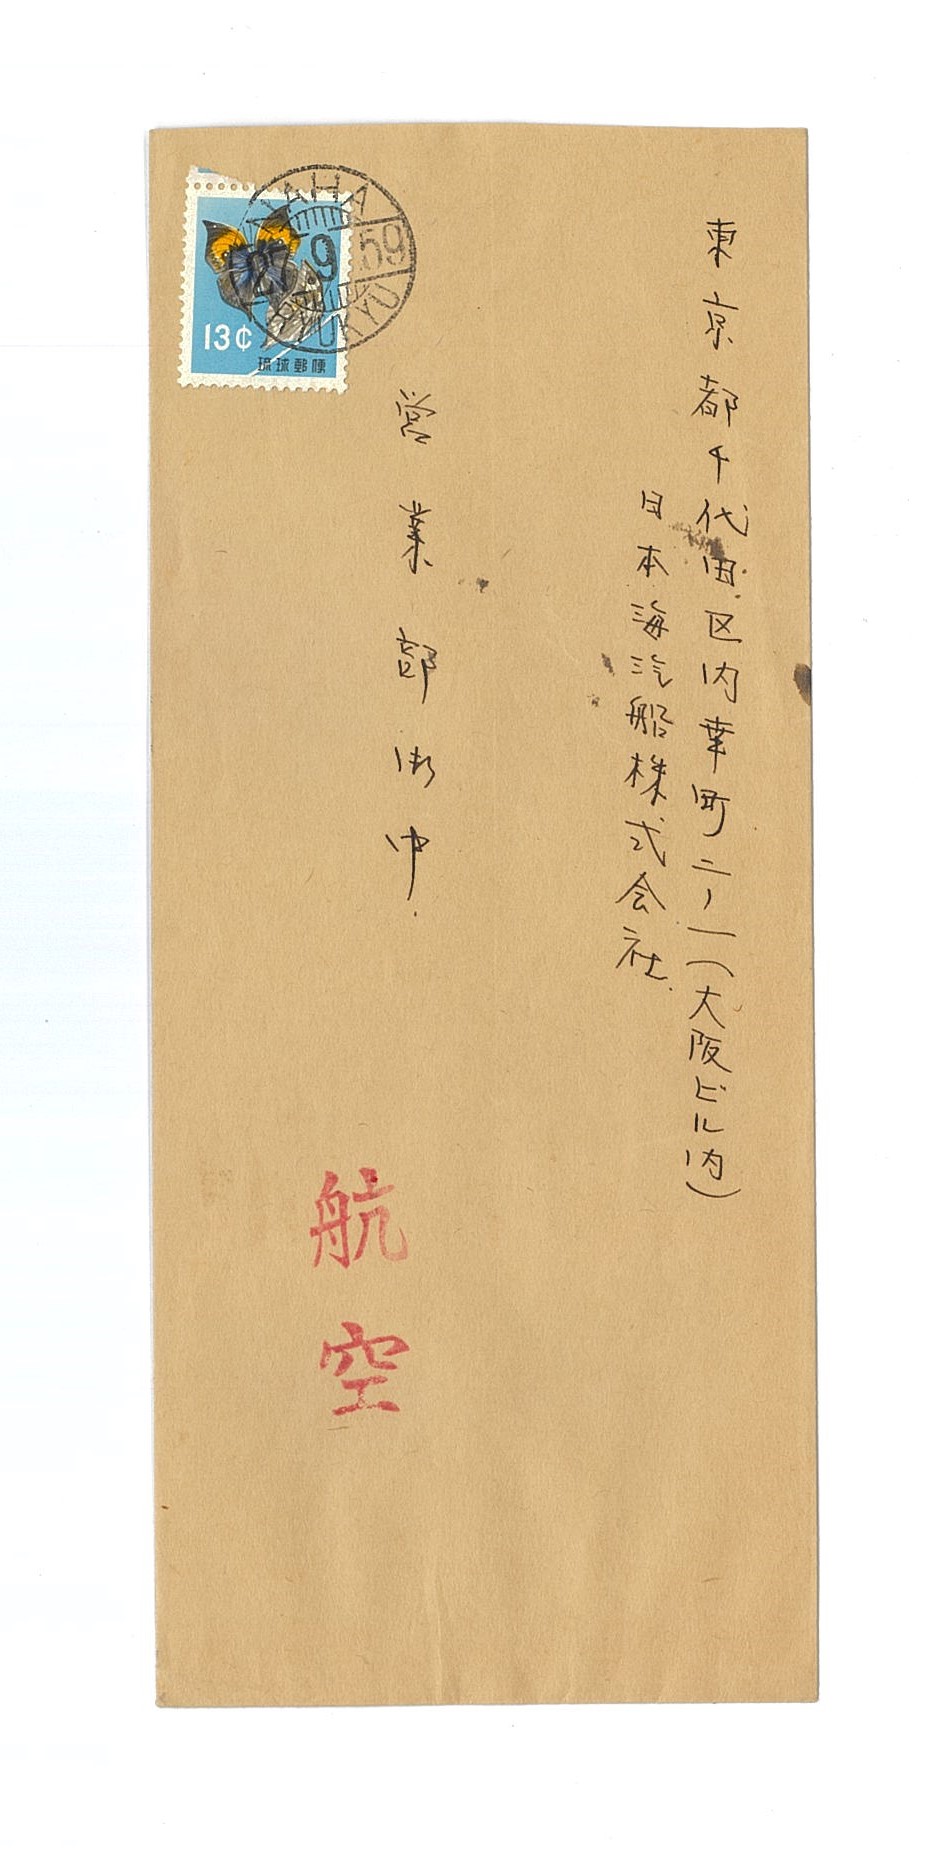 東京都千代田区内幸町二ノ一(大阪ビル内)
日本海汽船株式会社
営業部御中
航空
NAHA
27.9.59
RYUKYU
13¢
琉球郵便